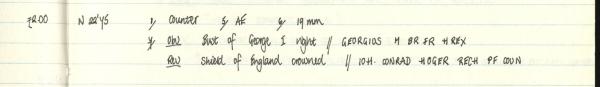 N 22'45 1, Counter 2, AE 3, 19 mm
4, Obv Bust of George I right // GEORGIOS M BR FR H REX
Rev Shield of England crowned // IOH. CONRAD HOGER RECH PF COUN